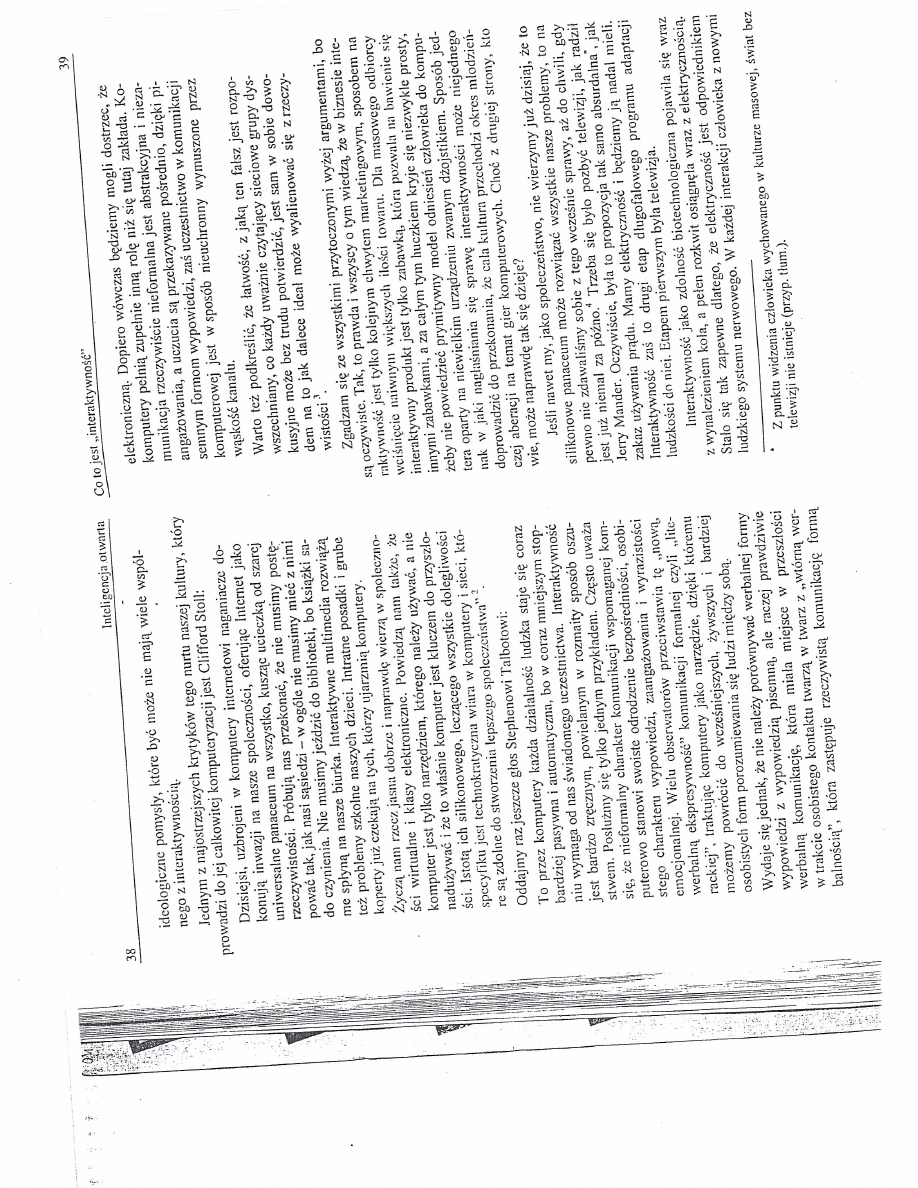 38
Inteligencja otwarta
ideologiczne pomysły, które być może nie mają wiele wspól-
nego z interaktywnością.
Jednym z najostrzejszych krytyków tego nurtu naszej kultury, który
prowadzi do jej całkowitej komputeryzacji jest Clifford Stoll:
Dzisiejsi, uzbrojeni w komputery internetowi naganiacze do-
konują inwazji na nasze społeczności, oferując Internet jako
uniwersalne panaceum na wszystko, kusząc ucieczką od szarej
rzeczywistości. Próbują nas przekonać, że nie musimy postę-
pować tak, jak nasi sąsiedzi – w ogóle nie musimy mieć z nimi
do czynienia. Nie musimy jeździć do biblioteki, bo książki sa-
me spłyną na nasze biurka. Interaktywne multimedia rozwiążą
też problemy szkolne naszych dzieci. Intratne posadki i grube
koperty już czekają na tych, którzy ujarzmią komputery.
Życzą nam rzecz jasna dobrze i naprawdę wierzą w społeczno-
ści wirtualne i klasy elektroniczne. Powiedzą nam także, że
komputer jest tylko narzędziem, którego należy używać, a nie
nadużywać i że to właśnie komputer jest kluczem do przyszło-
ści. Istotą ich silikonowego, leczącego wszystkie dolegliwości
specyfiku jest technokratyczna wiara w komputery i sieci, któ-
re są zdolne do stworzenia lepszego społeczeństwa”².
Oddajmy raz jeszcze głos Stephenowi Talbotowi:
To przez komputery każda działalność ludzka staje się coraz
bardziej pasywna i automatyczna, bo w coraz mniejszym stop-
niu wymaga od nas świadomego uczestnictwa. Interaktywność
jest bardzo zręcznym, powielanym w rozmaity sposób oszu-
stwem. Posłużmy się tylko jednym przykładem. Często uważa
się, że nieformalny charakter komunikacji wspomaganej kom-
puterowo stanowi swoiste odrodzenie bezpośredniości, osobi-
stego charakteru wypowiedzi, zaangażowania i wyrazistości
emocjonalnej. Wielu obserwatorów przeciwstawia tę „nową,
werbalną ekspresywność” komunikacji formalnej czyli „lite-
rackiej”, traktując komputery jako narzędzie, dzięki któremu
możemy powrócić do wcześniejszych, żywszych i bardziej
osobistych form porozumiewania się ludzi między sobą.
Wydaje się jednak, że nie należy porównywać werbalnej formy
wypowiedzi z wypowiedzią pisemną, ale raczej prawdziwie
werbalną komunikację, która miała miejsce w przeszłości
w trakcie osobistego kontaktu twarzą w twarz z „wtórną wer-
balnością”, która zastępuje rzeczywistą komunikację formą
Co to jest „interaktywność”
39
elektroniczną. Dopiero wówczas będziemy mogli dostrzec, że
komputery pełnią zupełnie inną rolę niż się tutaj zakłada. Ko-
munikacja rzeczywiście nieformalna jest abstrakcyjna i nieza-
angażowania, a uczucia są przekazywane pośrednio, dzięki pi-
semnym formom wypowiedzi, zaś uczestnictwo w komunikacji
komputerowej jest w sposób nieuchronny wymuszone przez
wąskość kanału.
Warto też podkreślić, że łatwość, z jaką ten fałsz jest rozpo-
wszechniany, co każdy uważnie czytający sieciowe grupy dys-
kusyjne może bez trudu potwierdzić, jest sam w sobie dowo-
dem na to jak dalece ideał może wyalienować się z rzeczy-
wistości³.
Zgadzam się ze wszystkimi przytoczonymi wyżej argumentami, bo
są oczywiste. Tak, to prawda i wszyscy o tym wiedzą, że w biznesie inte-
raktywność jest tylko kolejnym chwytem marketingowym, sposobem na
wciśnięcie naiwnym większych ilości towaru. Dla masowego odbiorcy
interaktywny produkt jest tylko zabawką, która pozwala na bawienie się
innymi zabawkami, a za całym tym huczkiem kryje się niezwykle prosty,
żeby nie powiedzieć prymitywny model odniesień człowieka do kompu-
tera oparty na niewielkim urządzeniu zwanym dżojstikiem. Sposób jed-
nak w jaki nagłaśniania się sprawę interaktywności może niejednego
doprowadzić do przekonania, że cała kultura przechodzi okres młodzień-
czej aberracji na temat gier komputerowych. Choć z drugiej strony, kto
wie, może naprawdę tak się dzieje?
Jeśli nawet my, jako społeczeństwo, nie wierzymy już dzisiaj, że to
silikonowe panaceum może rozwiązać wszystkie nasze problemy, to na
pewno nie zdawaliśmy sobie z tego wcześnie sprawy, aż do chwili, gdy
jest już niemal za późno.⁴ Trzeba się było pozbyć telewizji, jak radził
Jerry Mander. Oczywiście, była to propozycja tak samo absurdalna*, jak
zakaz używania prądu. Mamy elektryczność i będziemy ją nadal mieli.
Interaktywność zaś to drugi etap długofalowego programu adaptacji
ludzkości do niej. Etapem pierwszym była telewizja.
Interaktywność jako zdolność biotechnologiczna pojawiła się wraz
z wynalezieniem koła, a pełen rozkwit osiągnęła wraz z elektrycznością.
Stało się tak zapewne dlatego, że elektryczność jest odpowiednikiem
ludzkiego systemu nerwowego. W każdej interakcji człowieka z nowymi
* Z punktu widzenia człowieka wychowanego w kulturze masowej, świat bez
telewizji nie istnieje (przyp. tłum.).